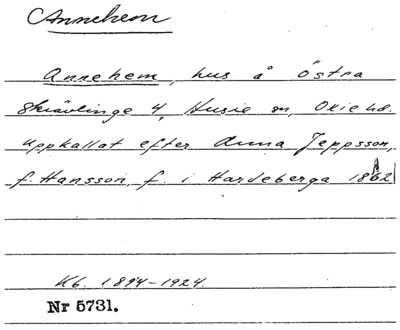 Annehem
Annehem, hus å Östra
Skrävlinge 4, Husie sn, Oxie hd.
Uppkallat efter Anna Jeppsson,
f. Hansson, f. i Hardeberga 1862
Kb. 1894-1924.
Nr 5731.